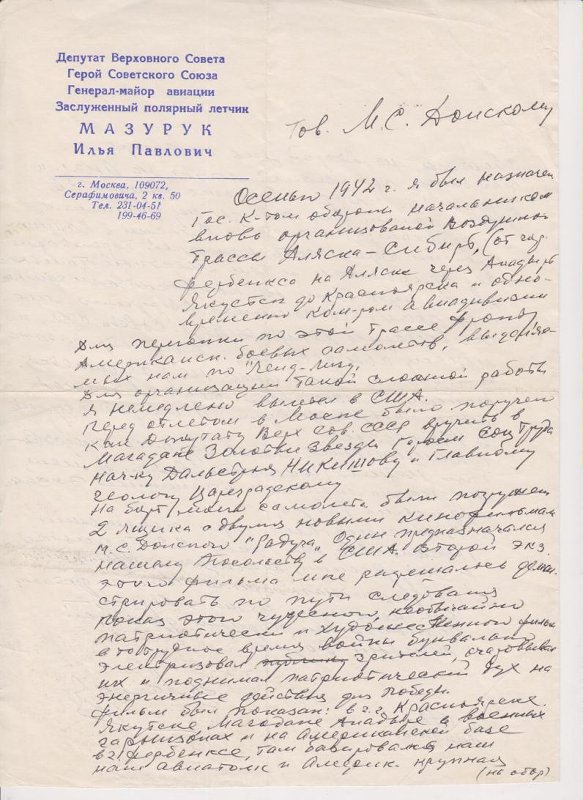 Депутат Верховного Совета
Герой Советского Союза
Генерал-майор авиации
Заслуженный полярный летчик
МАЗУРУК
Илья Павлович
г. Москва, 109072,
Серафимовича, 2 кв. 50
Тел. 231-04-51
199-46-69
Тов. М.С. Донскому
Осенью 1942 г. я был назначен
Гос. К-том обороны начальником
вновь организованой Воздушной
трассы Аляска-Сибирь, (от
Фербенкса на Аляске через Анадырь
Якутск до Красноярска и одно-
временно ком-ром авиадивизии
для перегонки по этой трассе фронту
Американск. боевых самолетов, выделяе-
мых нам по "Ленд-лизу.
Для организации такой сложной работы
я немедлено вылетел в США.
Перед отлетом в Москве было поручено
как Депутату Верх Сов. СССР вручить в
Магадане Золотые Звезды Героям Соц Труда
нач-ку Дальстроя Никишову и Главному
геологу Цареградскому
На борт моего самолета были погружены
2 ящика с двумя новыми кинофильмами
М.С. Донского "Радуга". Один предназначался
нашему Посольству в США. Второй экз.
этого фильма мне разрешалось демон-
стрировать по пути следования
Показ этого чудесного, необычайно
патриотически и художественного фильма
в то трудное время войны буквально
электризовал зрителей, очаровывал
их и поднимал патриотический дух на
энергичные действия для победы.
Фильм был показан: в г.г. Красноярске
Якутске Магадане Анадыре в военных
гарнизонах и на Американской базе
в г. Фербенксе, там базировался наш
наш авиаполк и Америк. крупная
(на обор)